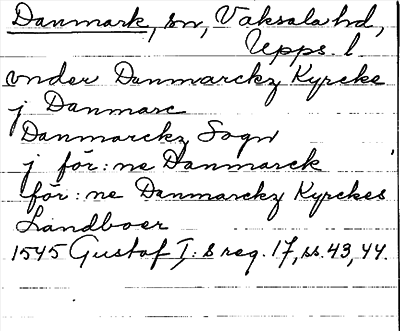 Danmark, sn, Vaksala hd,
Upps. l
vnder Danmarckz Kyrcke
j Danmarc
Danmarckz Sogn
j för: ne Danmarck
för: ne Danmarckz Kyrckes
Landboer
1545 Gustaf I: s reg. 17, ss. 43, 44.